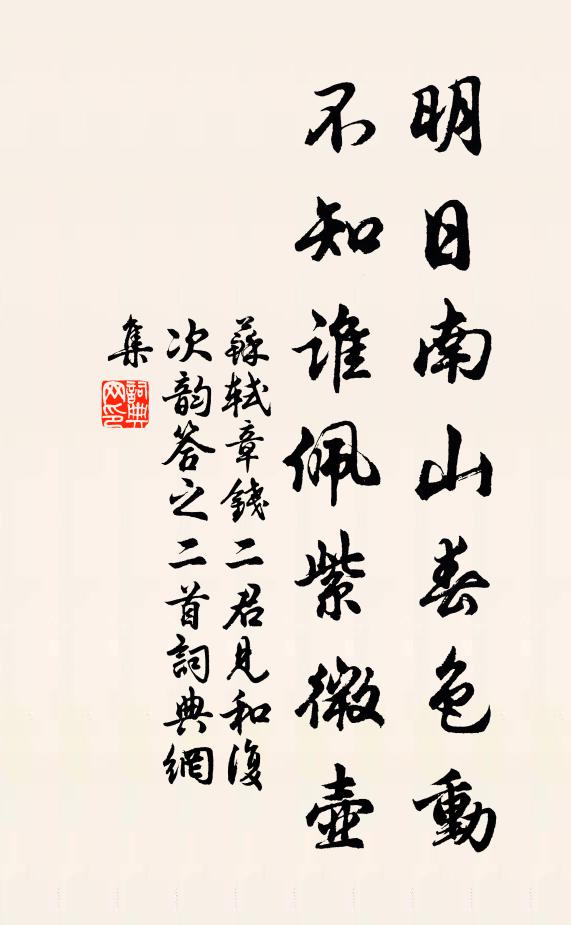 明日南山春色動
不知誰佩紫微壺
蘇軾章錢二君見和復
次韵答之二首詞典網
集
詞典
网印